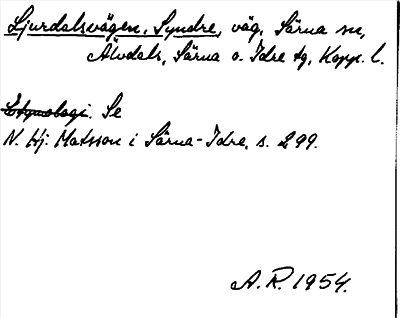 Ljurdalsvägen, Syndre, väg, Särna sn,
Älvdals, Särna o. Idre tg, Kopp. l.
Etymologi. Se
N. Hj. Matsson i Särna-Idre, s. 299.
A. R. 1954.